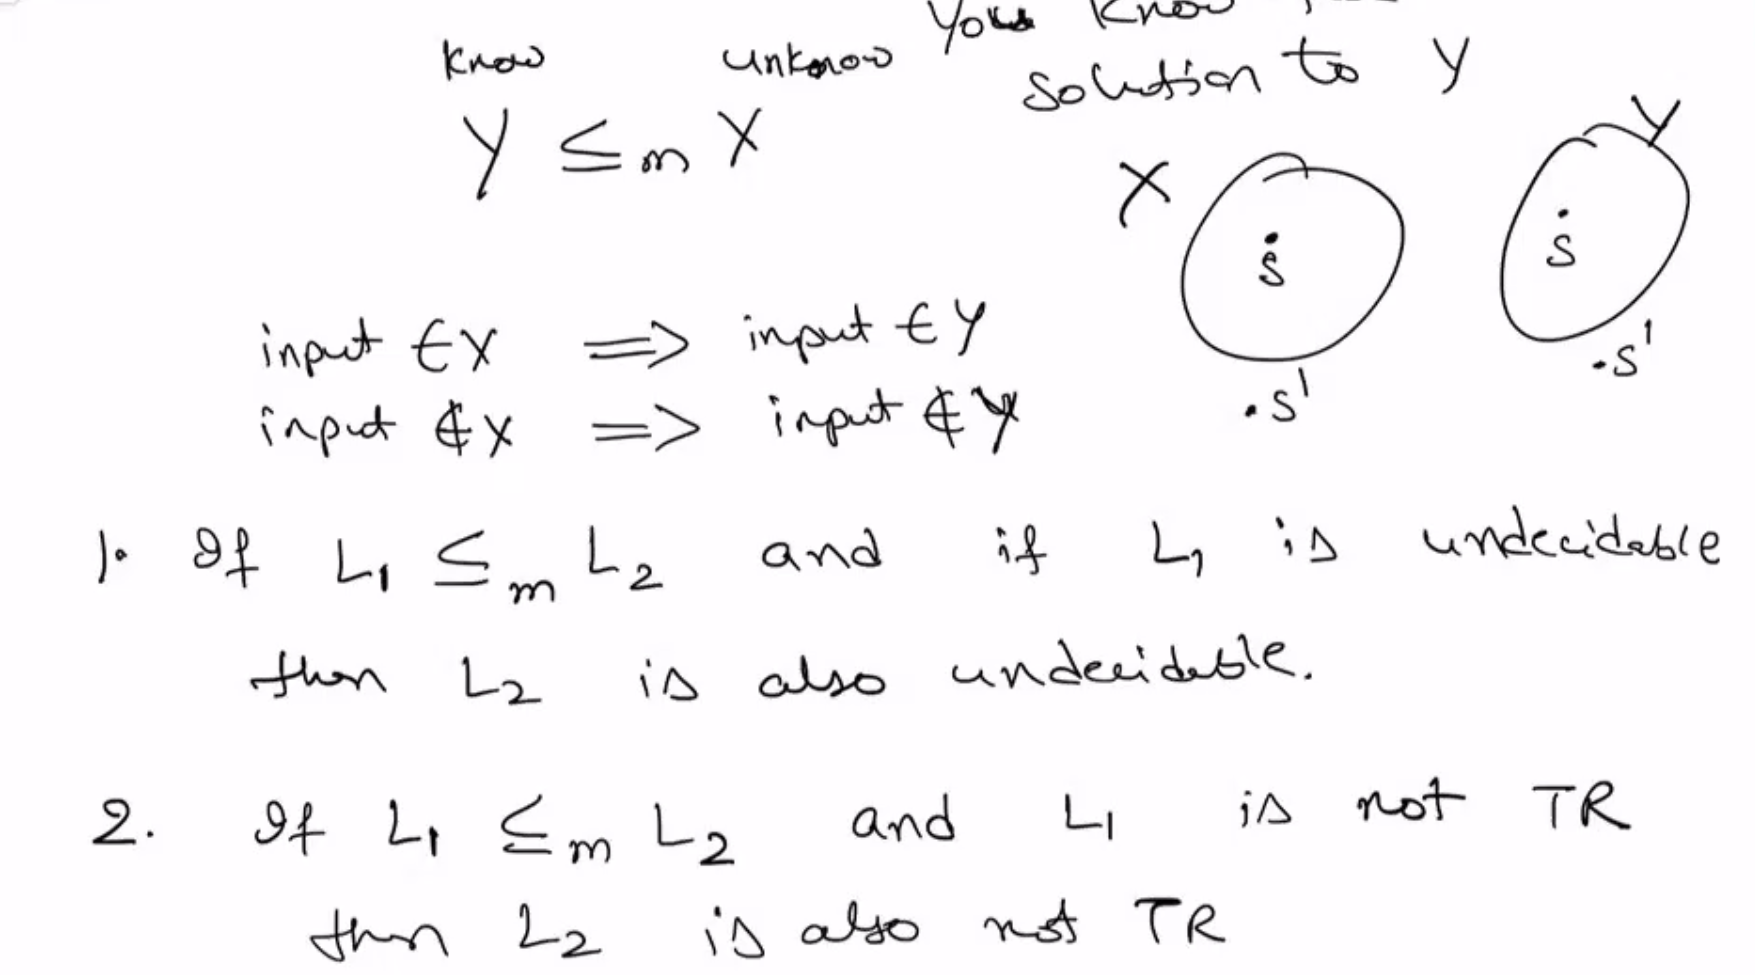 You Know
Know unknow solution to Y
Y ≤m X
X Y
s s
s' s'
input ∈ X ⇒ input ∈ Y
input ∉ X ⇒ input ∉ Y
1. If L1 ≤m L2 and if L1 is undecidable
then L2 is also undecidable.
2. If L1 ≤m L2 and L1 is not TR
then L2 is also not TR